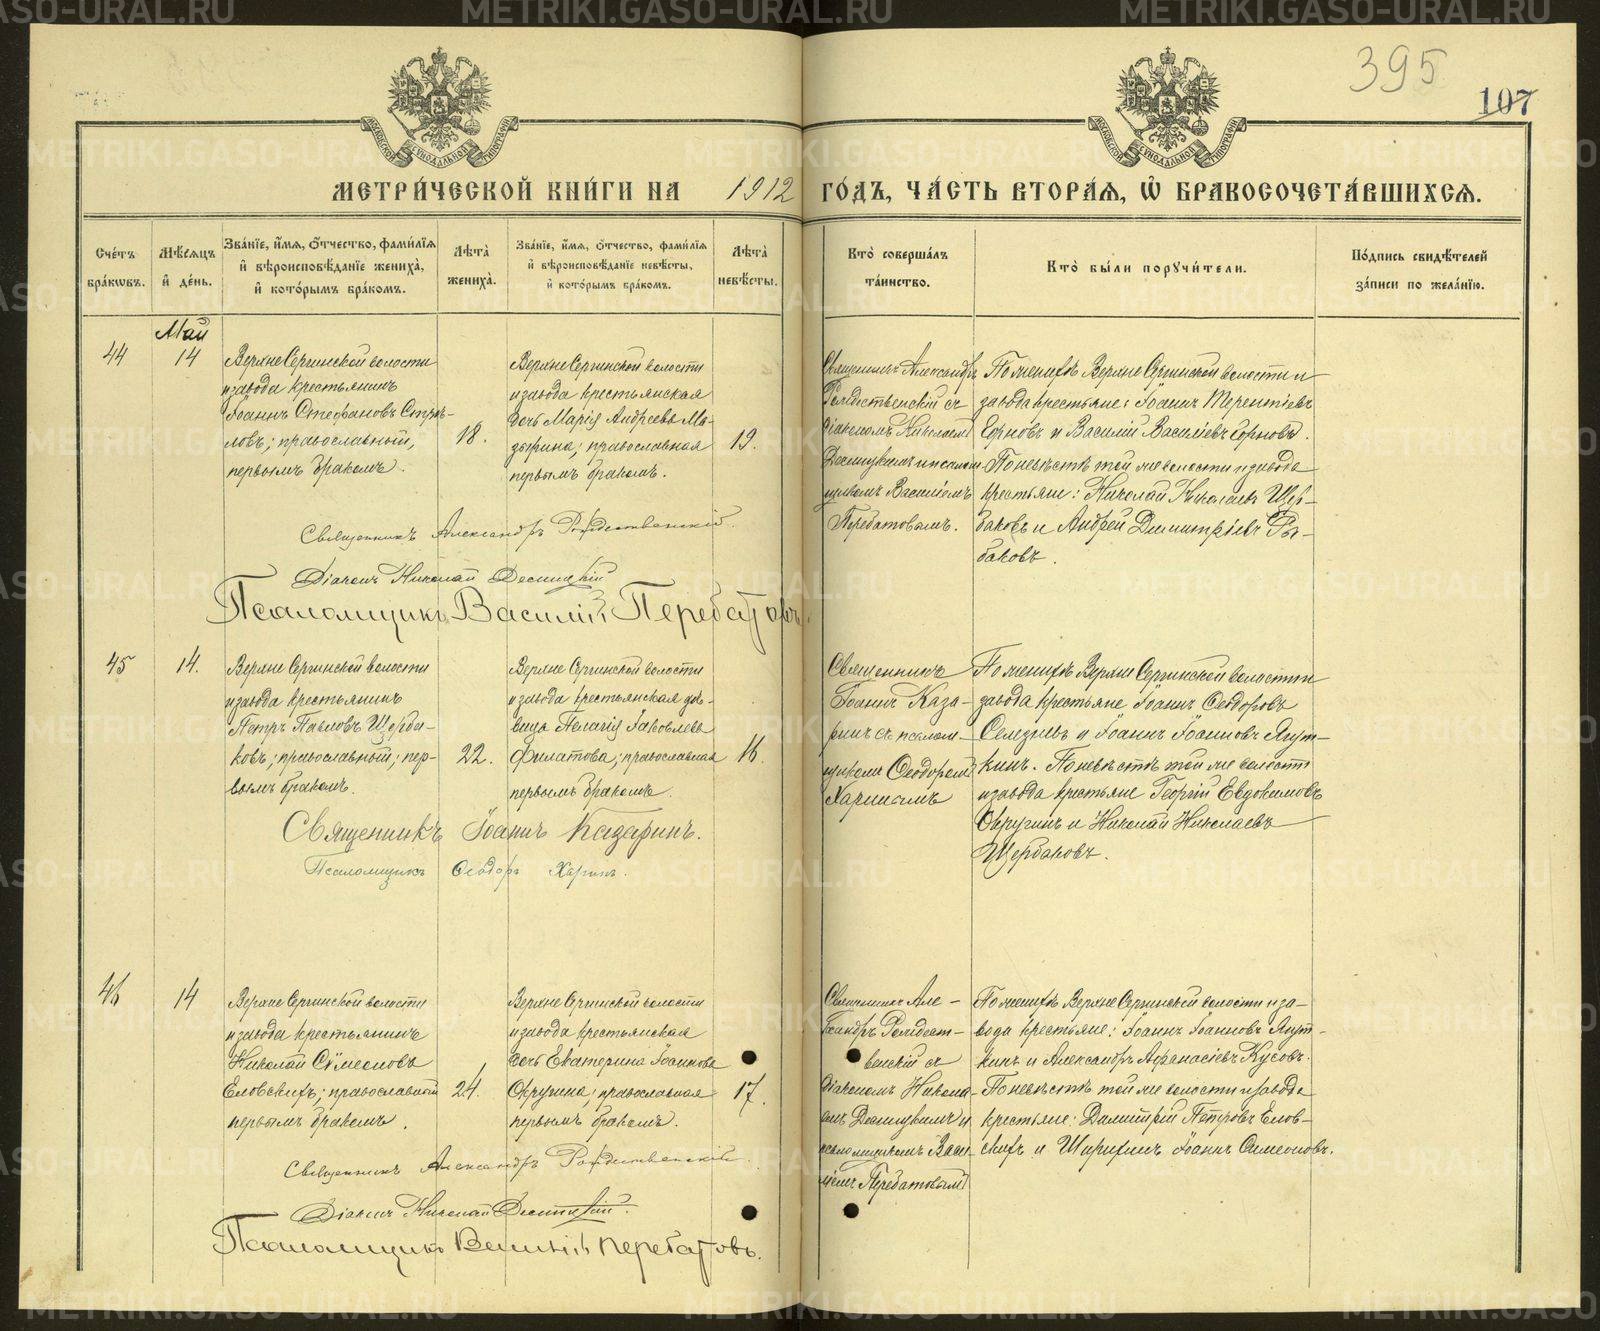 395
107
МЕТРИ́ЧЕСКОЙ КНИ́ГИ НА 1912 ГО́ДЪ, ЧА́СТЬ ВТОРА́Я, Ѡ БРАКОСОЧЕТА́ВШИХСЯ.
Сче́тъ бра́кѡвъ.
Мѣ́сяцъ и҆ де́нь.
Зва́нїе, и҆́мя, ѻ҆́тчество, фами́лїя и҆ вѣроисповѣ́данїе жениха̀, и҆ кото́рымъ бра́комъ.
Лѣ́та жениха̀.
Зва́нїе, и҆́мя, ѻ҆́тчество, фами́лїя и҆ вѣроисповѣ́данїе невѣ́сты, и҆ кото́рымъ бра́комъ.
Лѣ́та невѣ́сты.
Кто̀ соверша́лъ та́инство.
Кто̀ бы́ли поручи́тели.
По́дпись свидѣ́телей за́писи по жела́нїю.
Май
44
14
Верхне Сергинской волости
и завода крестьянинъ
Іоаннъ Стефановъ Стрѣ-
ловъ; православный,
первымъ бракомъ.
18.
Верхне Сергинской волости
и завода крестьянская
дочь Марія Андреева Ма-
зырина; православная
первымъ бракомъ.
19.
Священникъ Александръ
Рождественскій съ
діакономъ Николаемъ
Десницкимъ и псалом-
щикомъ Василіемъ
Перебатовымъ.
По женихѣ Верхне Сергинской волости и
завода крестьяне: Іоаннъ Терентіевъ
Горновъ и Василій Васильевъ Горновъ.
По невѣстѣ той же волости и завода
крестьяне: Николай Николаевъ Щер-
баковъ и Андрей Димитріевъ Ры-
баковъ.
Священникъ Александръ Рождественскій.
Діаконъ Николай Десницкій
Псаломщикъ Василій Перебатовъ.
45
14.
Верхне Сергинской волости
и завода крестьянинъ
Петръ Павловъ Щерба-
ковъ; православный; пер-
вымъ бракомъ.
22.
Верхне Сергинской волости
и завода крестьянская дѣ-
вица Пелагія Іаковлева
Филатова; православная
первымъ бракомъ.
16.
Священникъ
Іоаннъ Каза-
ринъ съ псалом-
щикомъ Ѳеодоромъ
Харинымъ
По женихѣ Верхне Сергинской волости и
завода крестьяне Іоаннъ Ѳеодоровъ
Селезневъ и Іоаннъ Іоанновъ Ягут-
кинъ. По невѣстѣ той же волости
и завода крестьяне Георгій Евдокимовъ
Округинъ и Николай Николаевъ
Щербаковъ.
Священникъ Іоаннъ Казаринъ.
Псаломщикъ Ѳеодоръ Харинъ.
46
14
Верхне Сергинской волости
и завода крестьянинъ
Николай Сѷмеоновъ
Еловскихъ; православный
первымъ бракомъ.
24.
Верхне Сергинской волости
и завода крестьянская
дочь Екатерина Іоаннова
Округина; православная
первымъ бракомъ.
17.
Священникъ Але-
ксандръ Рождест-
венскій съ
діакономъ Никола-
емъ Десницкимъ и
псаломщикомъ Васи-
ліемъ Перебатовымъ
По женихѣ Верхне Сергинской волости и за-
вода крестьяне: Іоаннъ Іоанновъ Ягут-
кинъ и Александръ Аѳанасіевъ Кусовъ.
По невѣстѣ той же волости и завода
крестьяне: Димитрій Петровъ Елов-
скихъ и Ширихинъ Іоаннъ Симеоновъ.
Священникъ Александръ Рождественскій.
Діаконъ Николай Десницкій.
Псаломщикъ Василій Перебатовъ.
METRIKI.GASO-URAL.RU